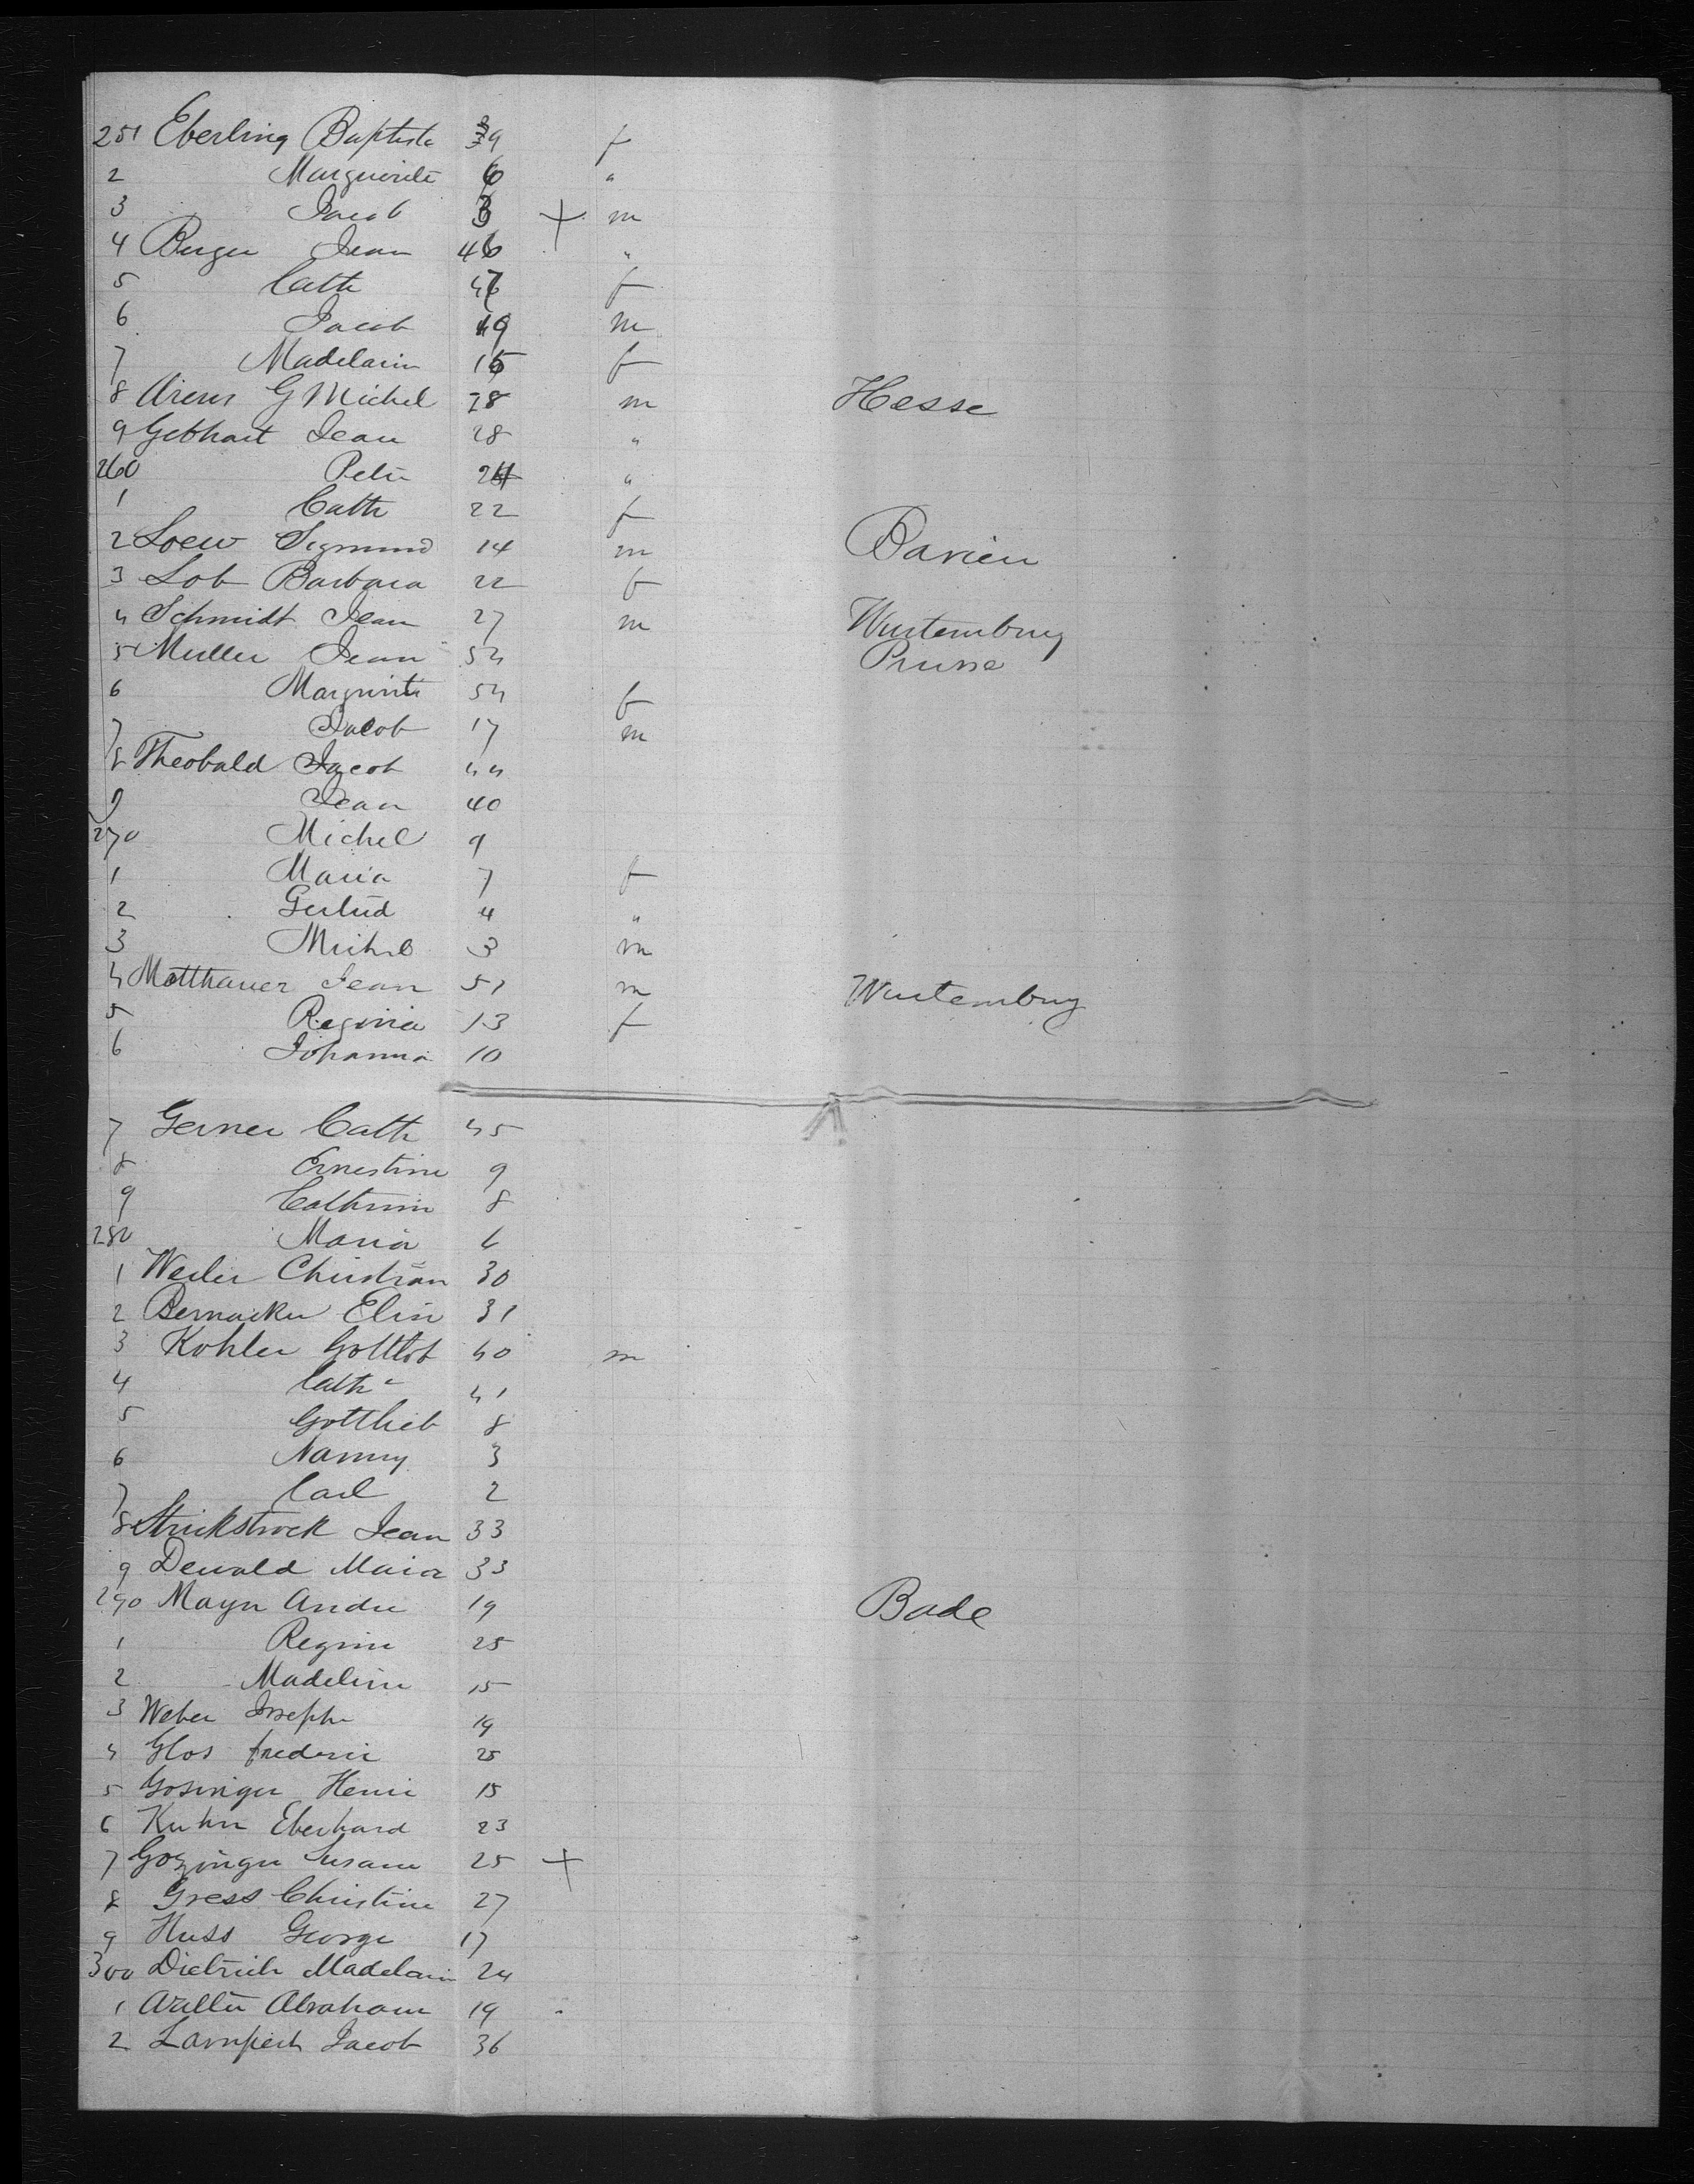 251 Eberling Baptiste 39 f
2 Marguerite 6 "
3 Jacob 3 + m
4 Berger Jean 46 "
5 Cath 47 f
6 Jacob 19 m
7 Madelain 15 f
8 G Michel 28 m Hesse
9 Gebhart Jean 28 "
260 Peter 24 "
1 Cath 22 f
2 Loew Sigmund 14 m Bavien
3 Lob Barbara 22 f
4 Schmidt Jean 27 m Wurtemburg
5 Muller Jean 54 Prusse
6 Marguerite 54 f
7 Jacob 17 m
8 Theobald Jacob 44
9 Jean 40
270 Michel 9
1 Maria 7 f
2 Gertud 4 "
3 Michel 3 m
4 Matthauer Jean 51 m Wurtemburg
5 Regina 13 f
6 Johanna 10
7 Gerner Cath 45
8 Ernestine 9
9 Cathrin 8
280 Maria 6
1 Christian 30
2 Elise 31
3 Kohler Gottlob 40 m
4 Cath 41
5 Gottlieb 8
6 Nanny 3
7 Carl 2
8 Jean 33
9 Dewald Maria 33
290 Mayer Andre 19 Bade
1 Regine 25
2 Madeline 15
3 Weber Joseph 19
4 Glos frederic 25
5 Henri 15
6 Kuhn Eberhard 23
7 Gozinger Susane 25 +
8 Gress Christine 27
9 Huss George 17
300 Dietrich Madelain 24
1 Abraham 19
2 Jacob 36